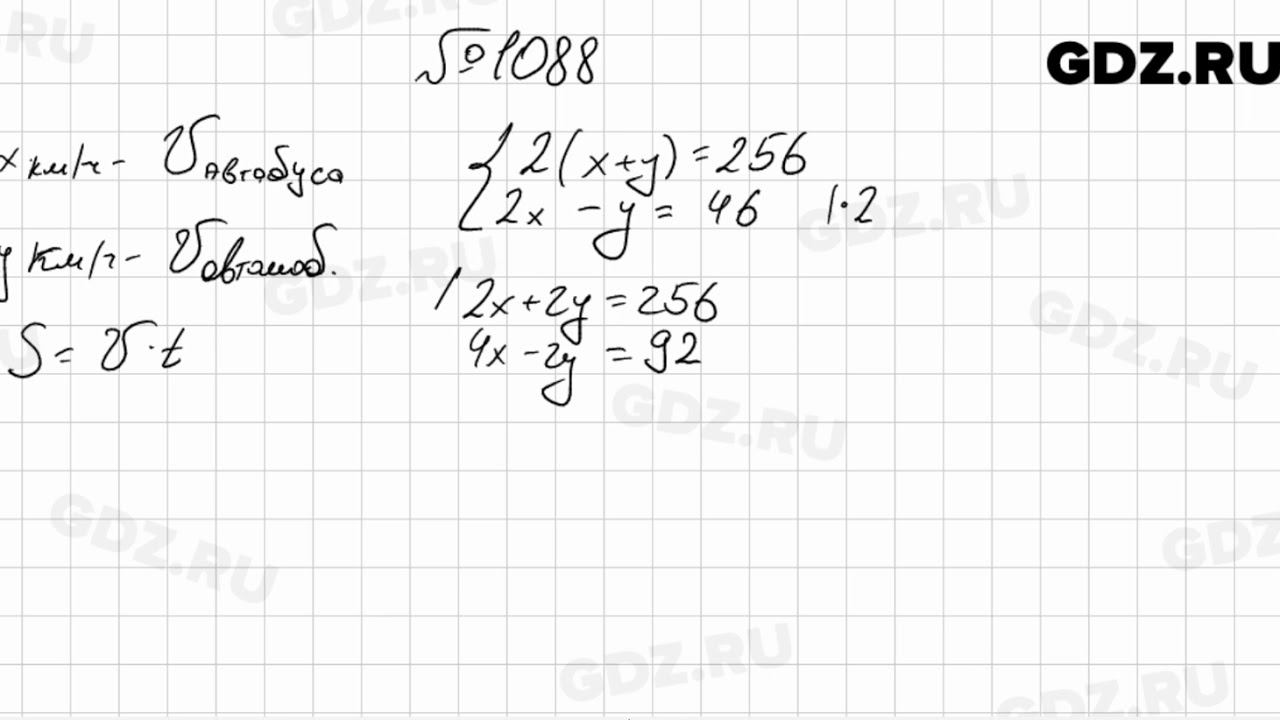 №1088
GDZ.RU
x км/ч - V автобуса
y км/ч - V автомоб.
S = V · t
{ 2(x+y) = 256
2x - y = 46 | · 2
2x + 2y = 256
4x - 2y = 92
GDZ.RU
GDZ.RU
GDZ.RU
GDZ.RU
GDZ.RU
GDZ.RU
GDZ.RU
GDZ.RU
GDZ.RU